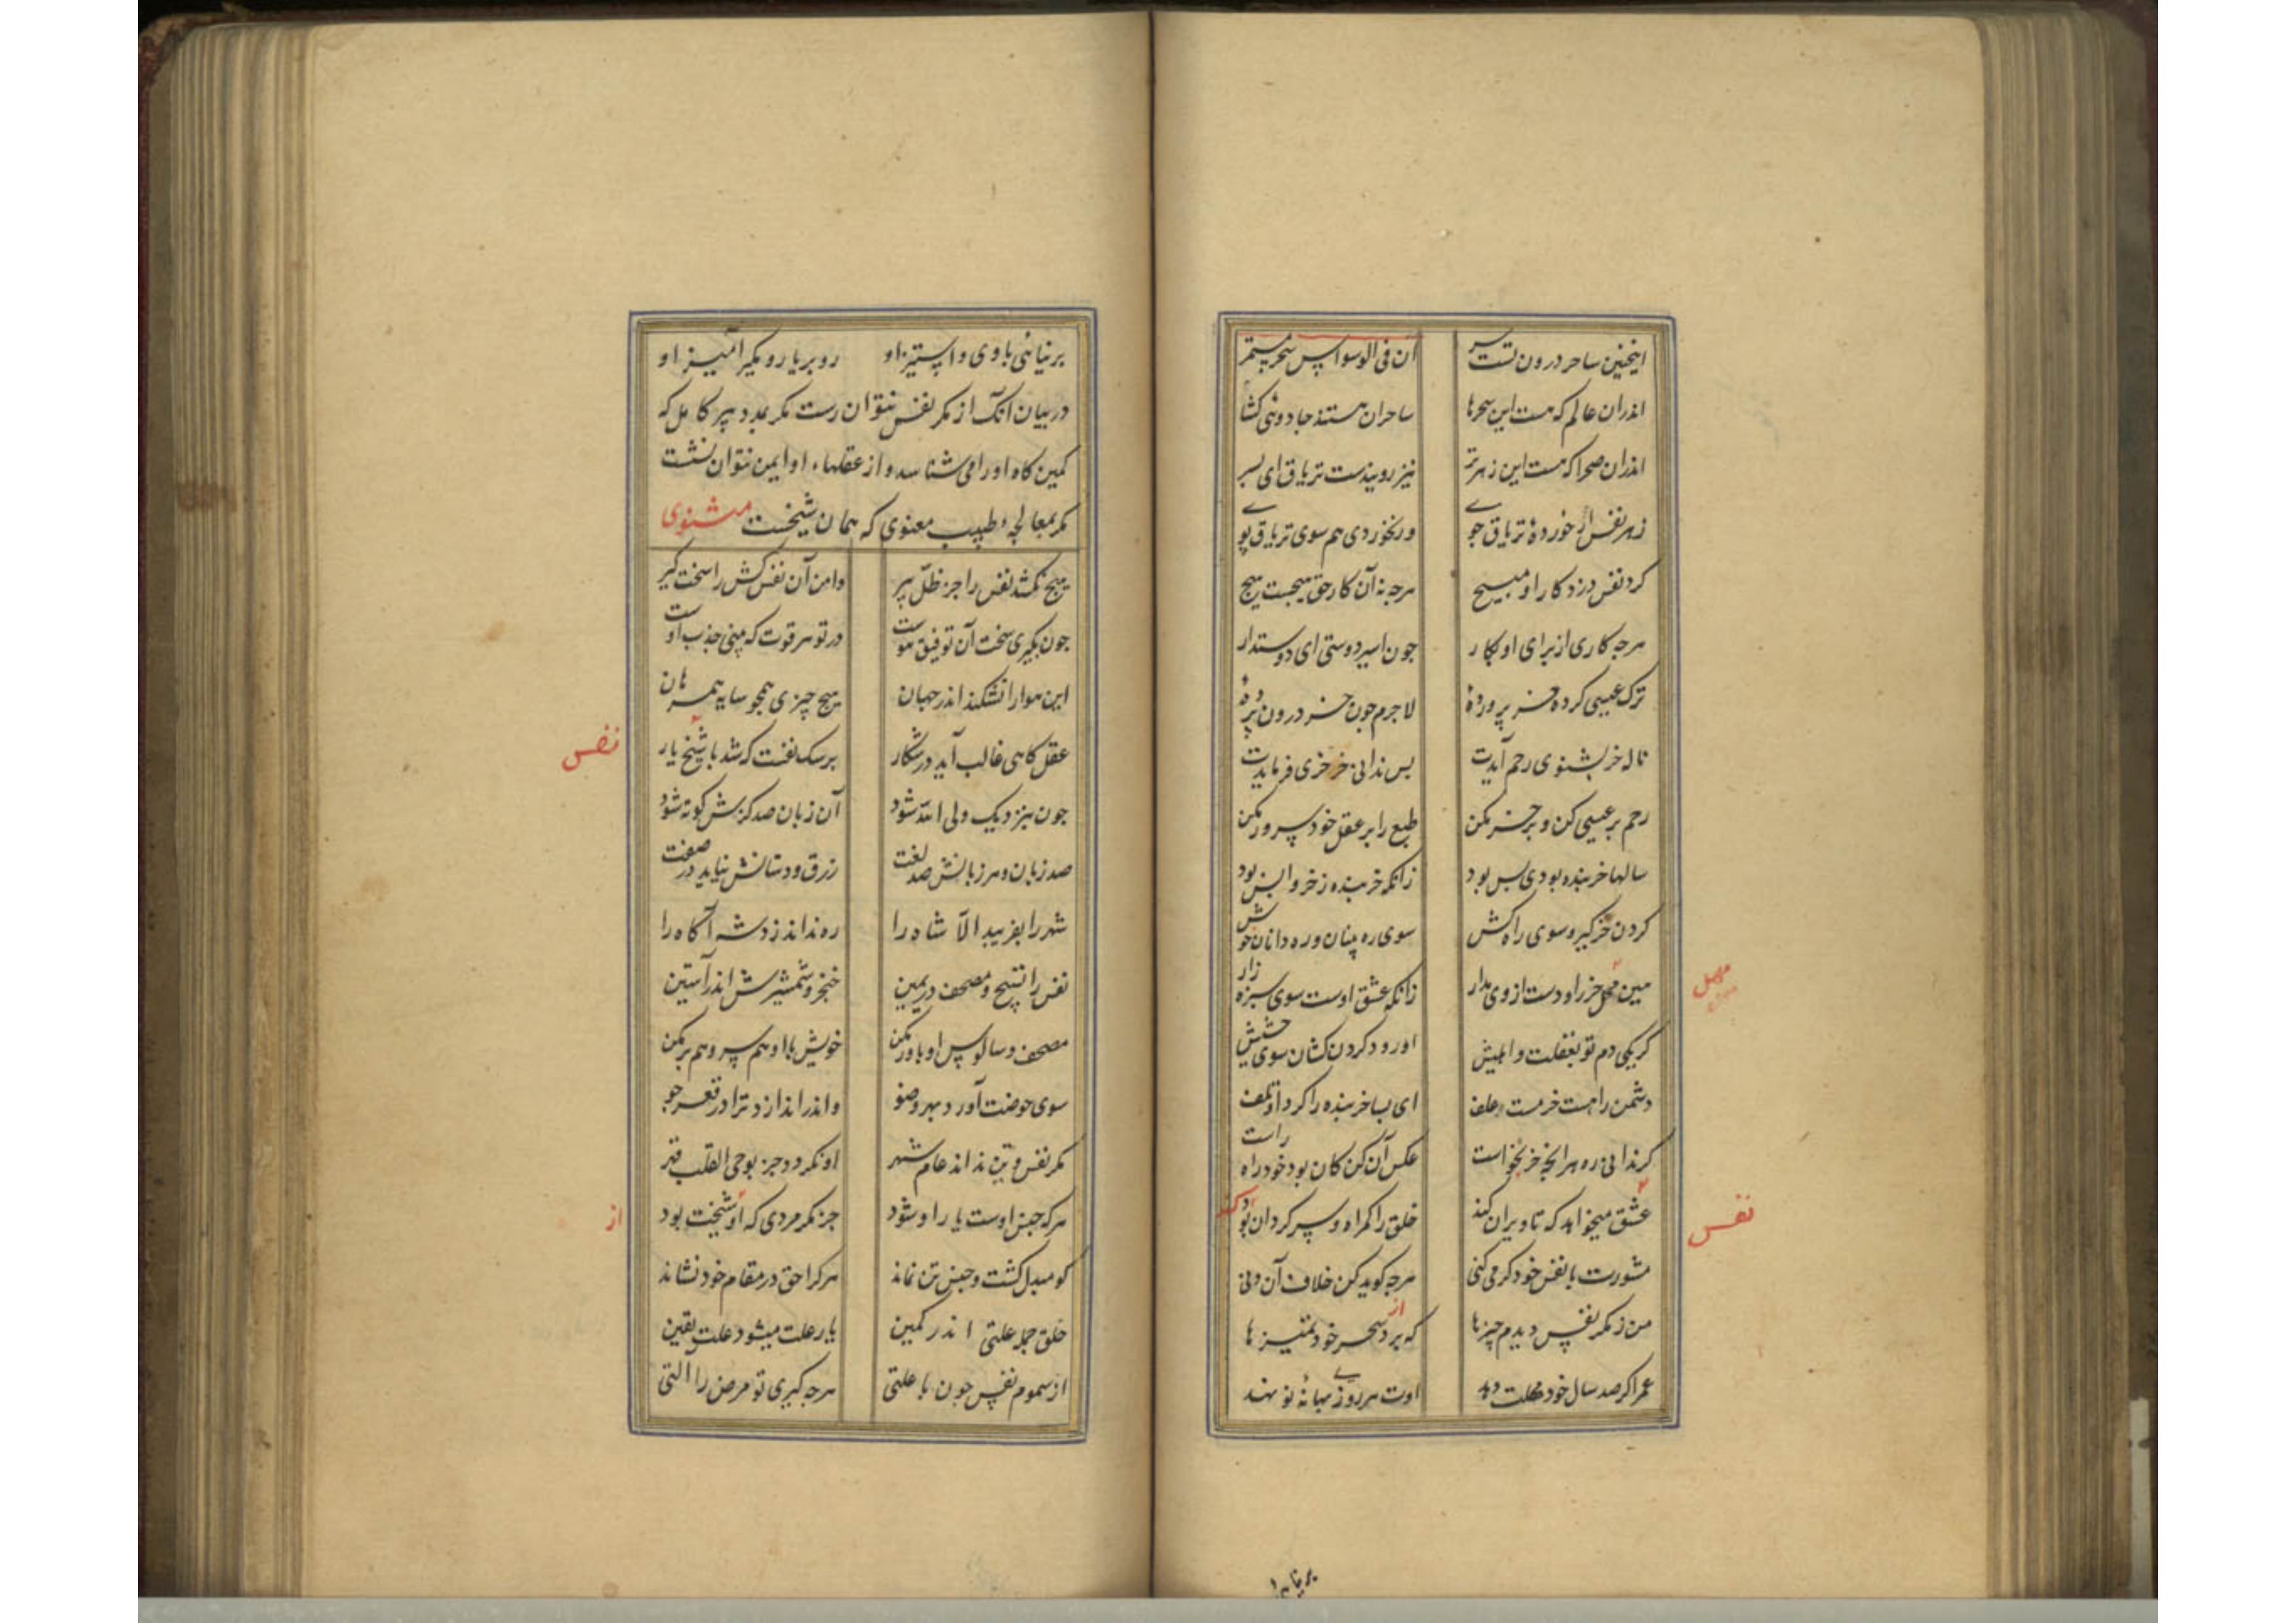 اینچنین ساحر درون تست سر ان فی الوسواس سحر مستتر
اندران عالم که هست این سحرها ساحران هستند جادوئی کشا
اندران صحرا که هست این زهر تر نیز روییدست تریاق ای پسر
زهر نفس ار خوردهٔ تریاق جوے ور نخوردی هم سوی تریاق پوے
کرد نفس دزد کار او مپیچ هرچه نه آن کار حق هیچست هیچ
هرچه کاری از برای او بکار چون اسیر دوستی ای دوستدار
ترک عیسی کرده خر پروردهٔ لاجرم چون خر درون پردهٔ
ناله خر بشنوی رحم آیدت پس ندانی خر خری فرمایدت
رحم بر عیسی کن و بر خر مکن طبع را بر عقل خود سرور مکن
سالها خربنده بودی بس بود زانکه خربنده ز خر واپس بود
کردن خر کیر و سوی راه کش سوی ره بینان و ره دانان خوش
هین مهل خر را و دست از وی مدار زانکه عشق اوست سوی سبزه زار
مهل
کر یکی دم تو بغفلت واهلیش او رود کردن کشان سوی حشیش
دشمن راهست خر مست علف ای بسا خربنده را کرد او تلف
کر ندانی ره هر انچه خر بخواست عکس آن کن کان بود خود راه راست
عشق میخواهد که تا ویران کند خلق را کمراه و سرکردان بود کند
نفس
مشورت با نفس خود کر می کنی هرچه کوید کن خلاف آن دنی
من ز مکر نفس دیدم چیزها که برد از سحر خود تمییزها
عمر اکر صد سال خود مهلت دهد اوت هر روزے بهانهٔ نو نهد
بر نیائی با وی و استیز او رو بر یار رو بکیر آمیز او
در بیان انک از مکر نفس نتوان رست مکر بمدد پیر کامل که
کمین کاه او را می شناسد و از عقلهاء او ایمن نتوان نشست
مکر بمعالجهٔ طبیب معنوی که همان شیخست مثنوی
هیچ نکشد نفس را جز ظل پیر دامن آن نفس کش را سخت کیر
چون بکیری سخت آن توفیق هوست در تو هر قوت که بینی جذب اوست
این هوا را نشکند اندر جهان هیچ چیزی همچو سایه همرهان
عقل کاهی غالب آید در شکار بر سک نفست که شد با شیخ یار
نفس
چون بنزدیک ولی الله شود آن زبان صد کزش کوته شود
صد زبان و هر زبانش صد لغت زرق و دستانش نیاید در صفت
شهر را بفریبد الا شاه را ره نداند زد شه آکاه را
نفس را تسبیح و مصحف در یمین خنجر و شمشیرش اندر آستین
مصحف و سالوس او باور مکن خویش با او هم سر و هم بر مکن
سوی حوضت آورد بهر وضو واندر اندازد ترا در قعر جو
مکر نفس و تن نداند عام شهر او نکردد جز بوحی القلب قهر
هرکه جنس اوست یار او شود جز مکر مردی که او شیخت بود
از
کو مبدل کشت و جنس تن نماند هرکرا حق در مقام خود نشاند
خلق جمله علتی اندر کمین یار علت میشود علت یقین
از سموم نفس چون با علتی هرچه کیری تو مرض را التی